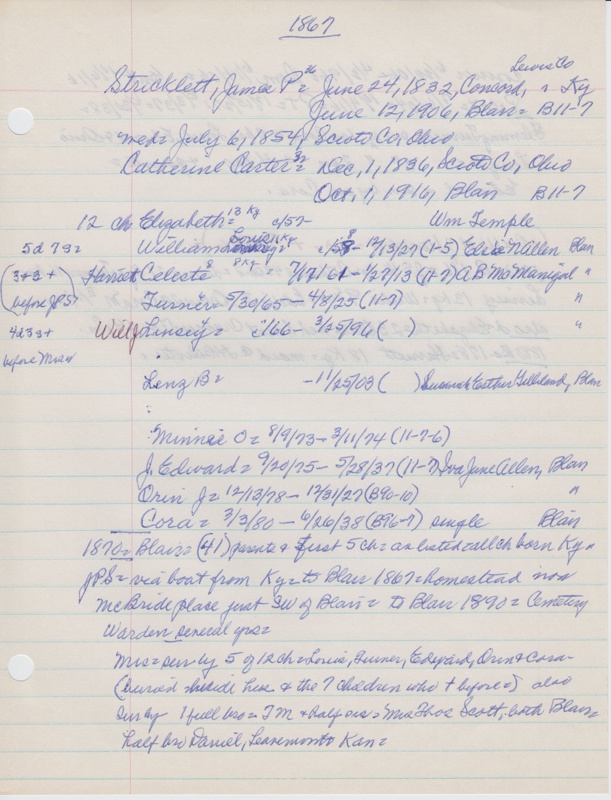 1867
Lewis Co
Stricklett, James P = June 24, 1832, Concord, Ky
June 12, 1906, Blair = B11-7
med = July 6, 1854, Scioto Co, Ohio
Catherine Carter = Dec, 1, 1836, Scioto Co, Ohio
Oct, 1, 1916, Blair B11-7
12 ch Elizabeth = 13 Ky c/57- Wm Temple
5d 7s = William Louis 11 Ky c/58 - 12/13/27 (1-5) Elsie N Allen Blair
(3+3+ Harriett Celeste 8 Ky = 7/17/61 - 1/27/13 (11-7) A B McManigal "
before JPS) Turner = 5/30/65 - 4/8/25 (11-7) "
4d3s+ Will J Linsey = c/66 - 3/25/96 ( ) "
before Mrs
Lenz B = - 11/25/03 ( ) Esther Gilliland, Blair
Minnie O = 8/9/73 - 3/11/74 (11-7-6)
J. Edward = 9/20/75 - 5/28/37 (11-7) Iva Jane Allen, Blair
Orin J = 12/13/78 - 12/31/27 (B90-10) "
Cora = 3/3/80 - 6/26/38 (B96-7) single Blair
1870 = Blair = (41) parents & first 5 ch = as listed = all ch born Ky
JPS = via boat from Ky = to Blair 1867 = homestead now
McBride place just SW of Blair = to Blair 1890 = Cemetery
Warden several yrs =
Mrs = sur by 5 of 12 ch = Louis, Turner, Edward, Orin & Cora -
(buried beside her & the 7 children who + before) also
sur by 1 full bro = T M & half sis = Mrs Thos Scott, both Blair =
half bro Daniel, Kan =